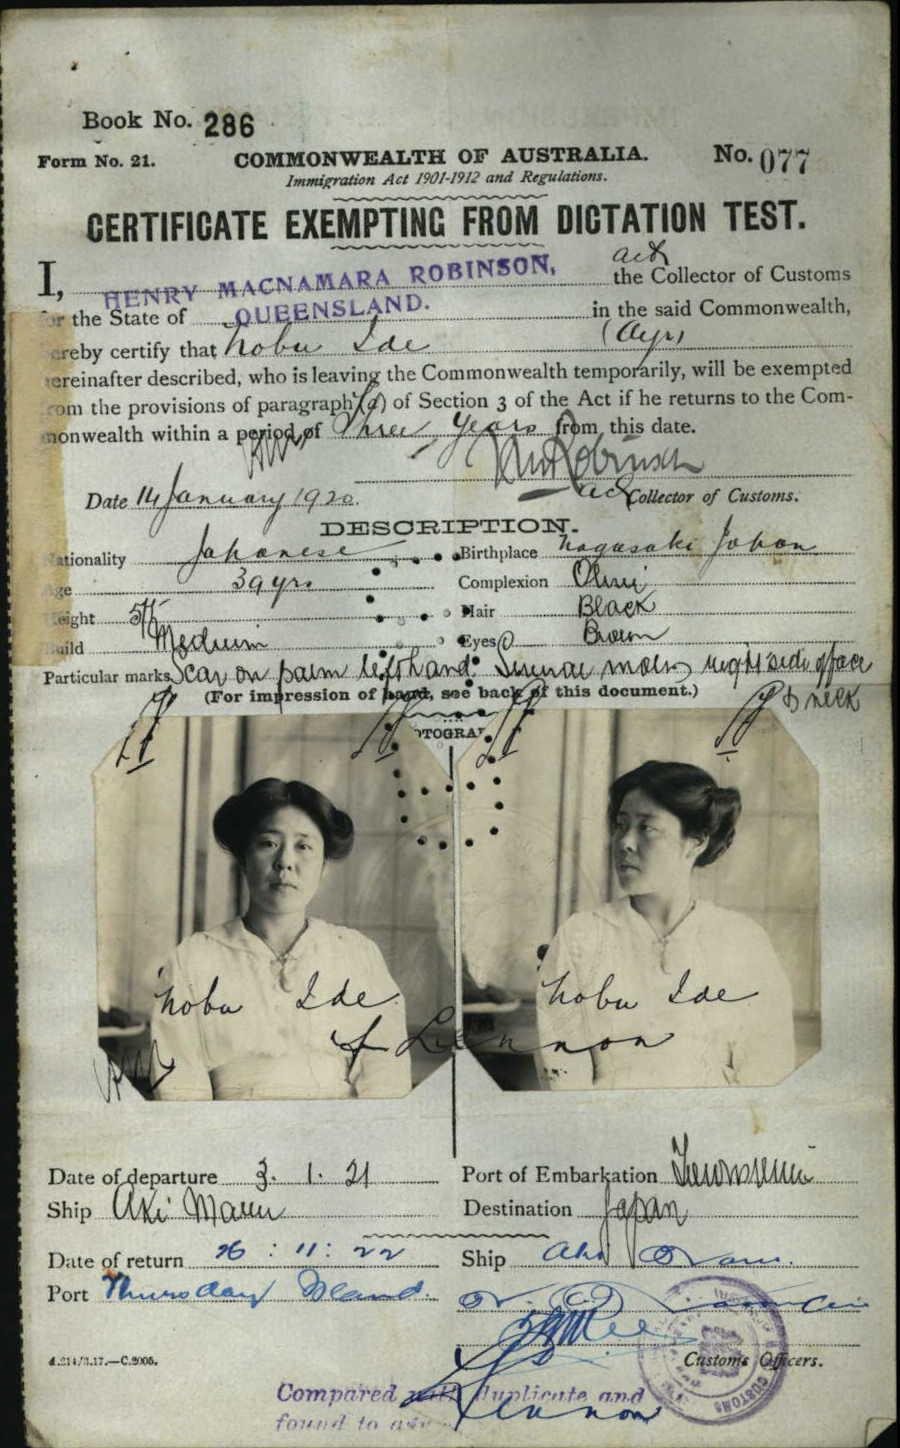 Book No. 286
Form No. 21.
COMMONWEALTH OF AUSTRALIA.
No. 077
Immigration Act 1901-1912 and Regulations.
CERTIFICATE EXEMPTING FROM DICTATION TEST.
I, HENRY MACNAMARA ROBINSON, the Collector of Customs
for the State of QUEENSLAND. in the said Commonwealth,
hereby certify that Nobu Ide (Ayr)
hereinafter described, who is leaving the Commonwealth temporarily, will be exempted
from the provisions of paragraph (a) of Section 3 of the Act if he returns to the Com-
monwealth within a period of Three Years from this date.
HM Robinson
Date 14 January 1920. Collector of Customs.
DESCRIPTION.
Nationality Japanese Birthplace Nagasaki Japan
Age 39 yrs Complexion Olive
Height 5ft Hair Black
Build Medium Eyes Brown
Particular marks Scar on palm left hand. Several moles right side of face
& neck
(For impression of hand, see back of this document.)
PHOTOGRAPHS
Nobu Ide
Nobu Ide
Lennon
Date of departure 3. 1. 21 Port of Embarkation Townsville
Ship Aki Maru Destination Japan
Date of return 26 : 11 : 22 Ship Aki Maru.
Port Thursday Island.
4.214/3.17.—C.2005.
Customs Officers.
CUSTOMS
Compared with duplicate and
found to
Lennon